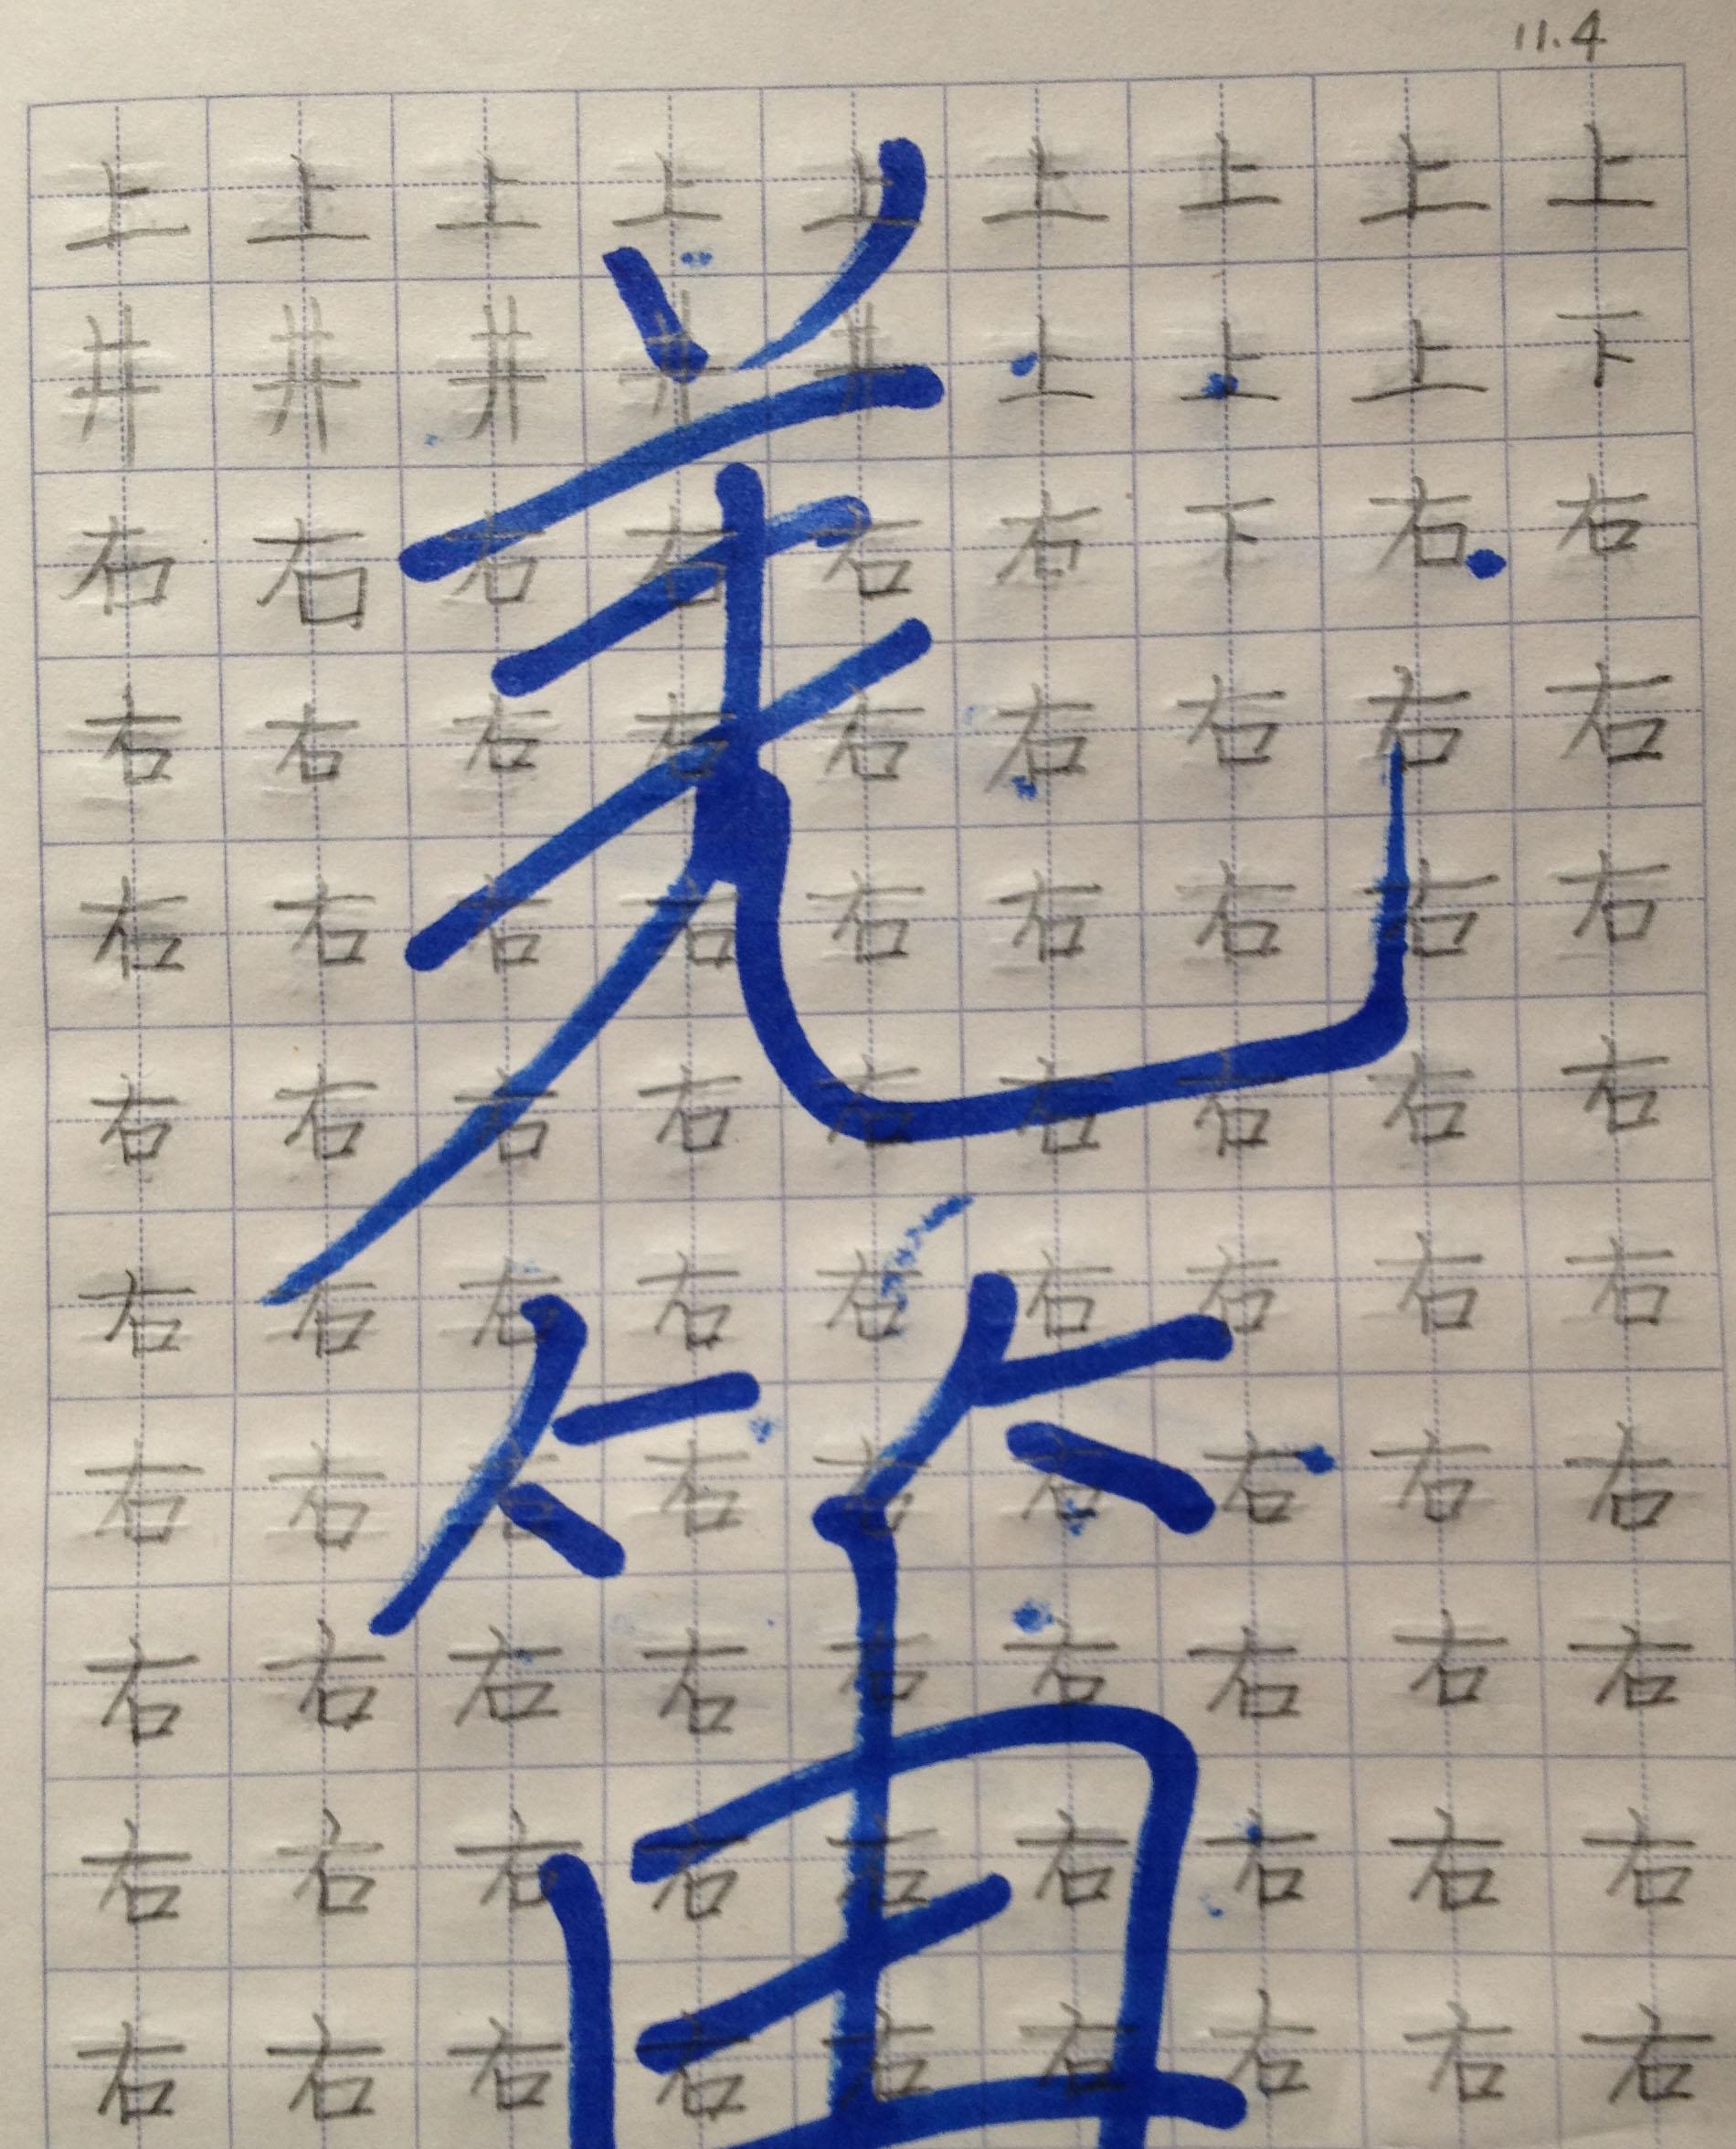 11.4
上上上上上上上上上
井井井井井上上上下
右右右右右右下右右
右右右右右右右右右
右右右右右右右右右
右右右右右右右右右
右右右右右右右右右
右右右右右右右右右
右右右右右右右右右
右右右右右右右右右
右右右右右右右右右
羌笛